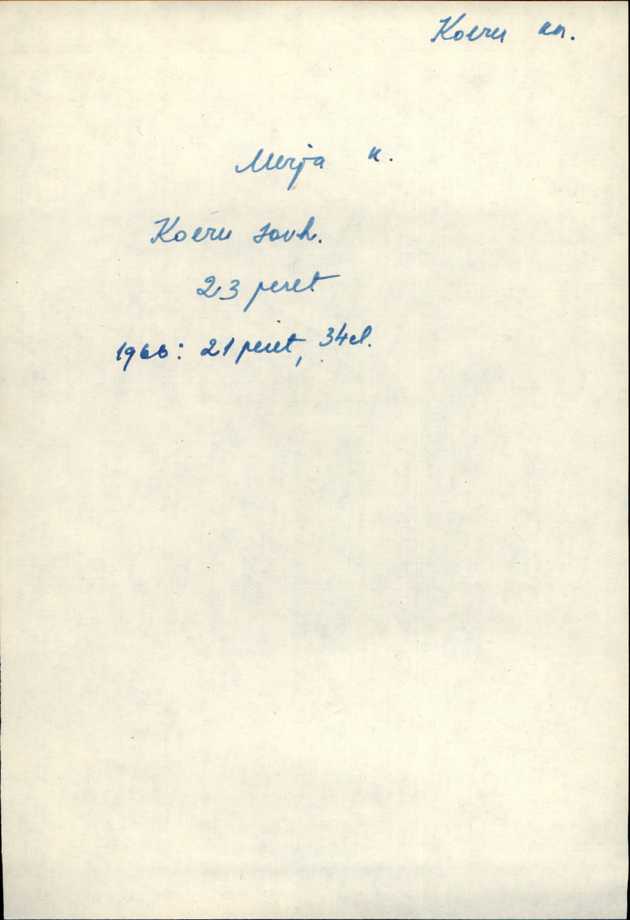 Koeru kn.
Merja k.
Koeru sovh.
23 peret
1966: 21 peret, 34 el.